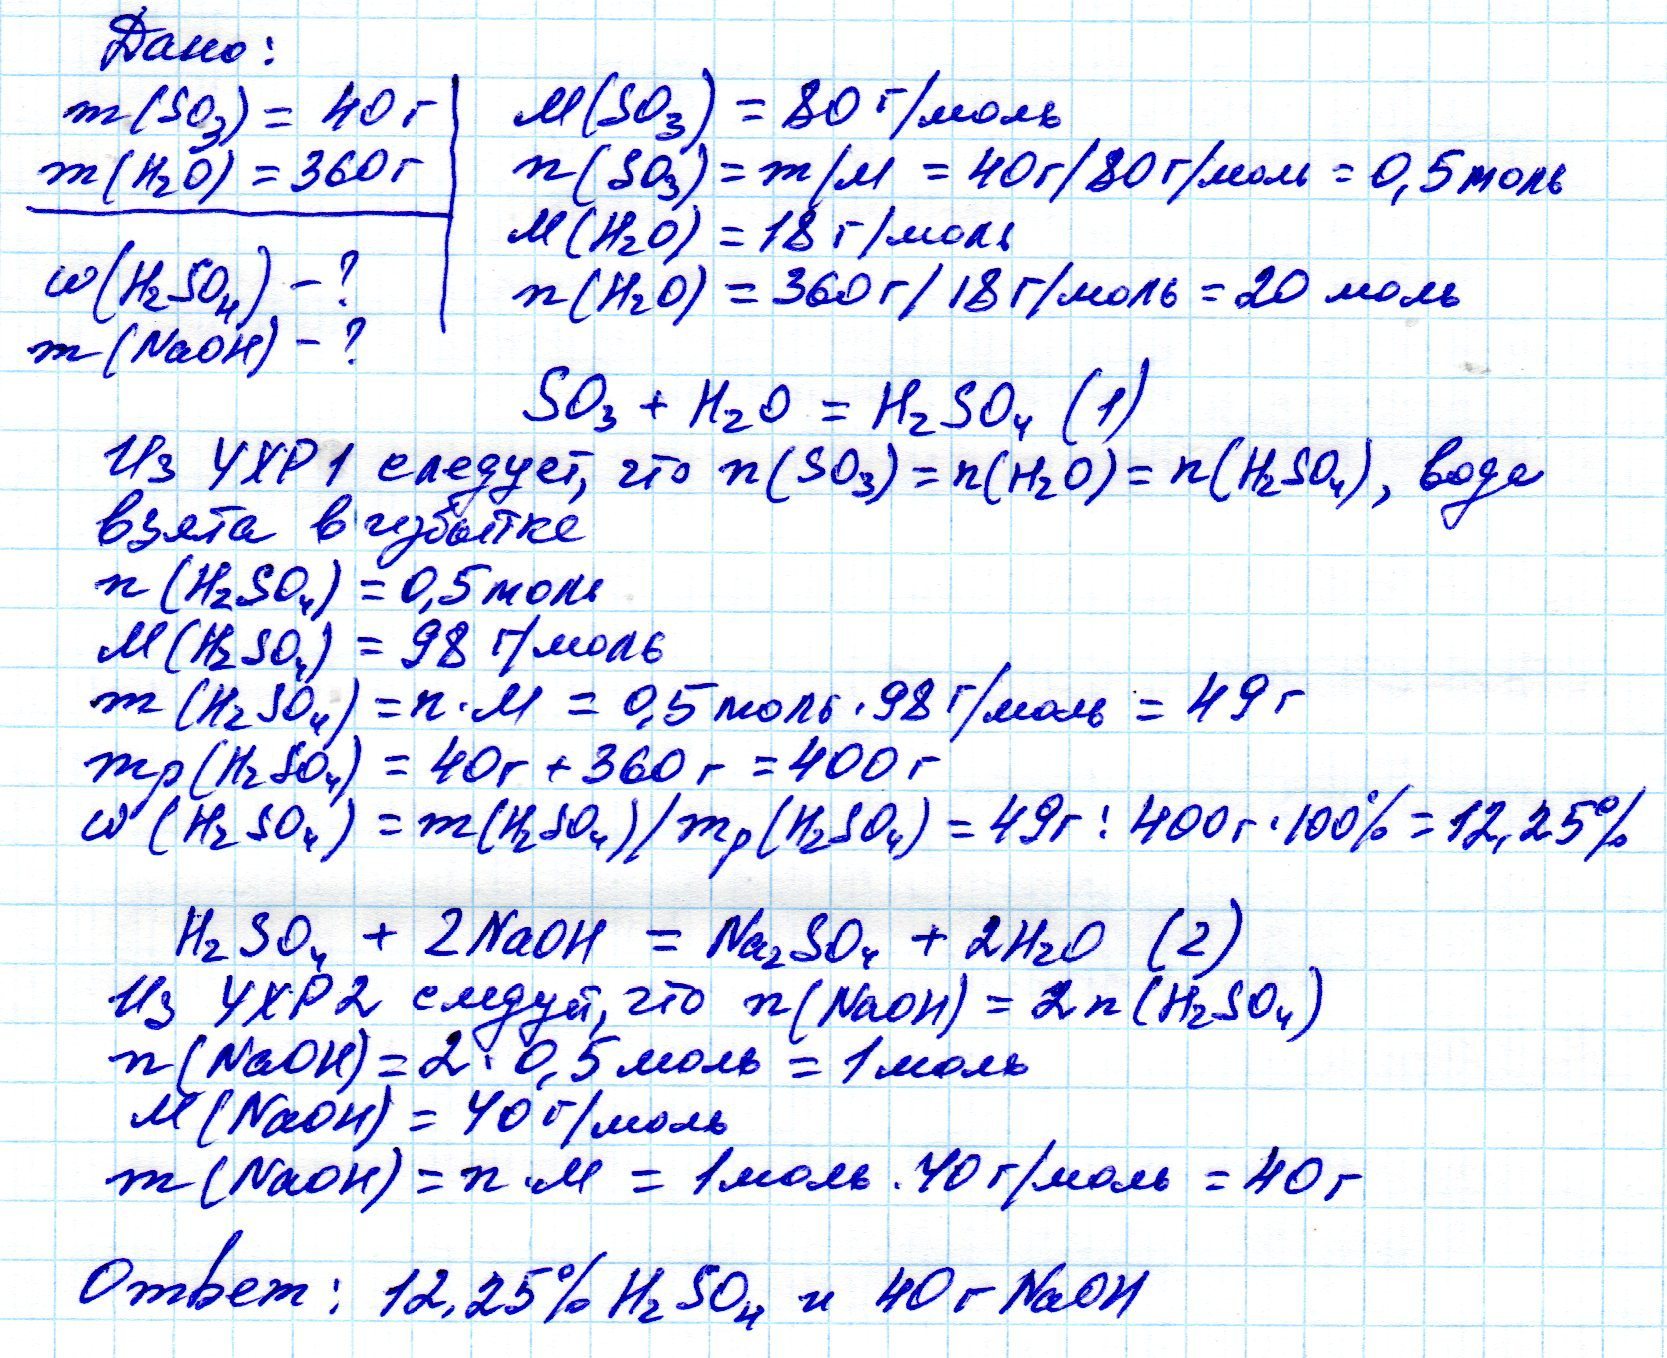 Дано:
m(SO₃) = 40г
m(H₂O) = 360г
ω(H₂SO₄) - ?
m(NaOH) - ?
M(SO₃) = 80 г/моль
n(SO₃) = m/M = 40г/80г/моль = 0,5 моль
M(H₂O) = 18 г/моль
n(H₂O) = 360г/18г/моль = 20 моль
SO₃ + H₂O = H₂SO₄ (1)
Из УХР1 следует, что n(SO₃) = n(H₂O) = n(H₂SO₄), вода
взята в избытке
n(H₂SO₄) = 0,5 моль
M(H₂SO₄) = 98 г/моль
m(H₂SO₄) = n·M = 0,5 моль·98г/моль = 49г
mр(H₂SO₄) = 40г + 360г = 400г
ω(H₂SO₄) = m(H₂SO₄)/mр(H₂SO₄) = 49г : 400г·100% = 12,25%
H₂SO₄ + 2NaOH = Na₂SO₄ + 2H₂O (2)
Из УХР2 следует, что n(NaOH) = 2n(H₂SO₄)
n(NaOH) = 2·0,5 моль = 1 моль
M(NaOH) = 40 г/моль
m(NaOH) = n·M = 1 моль·40г/моль = 40г
Ответ: 12,25% H₂SO₄ и 40г NaOH